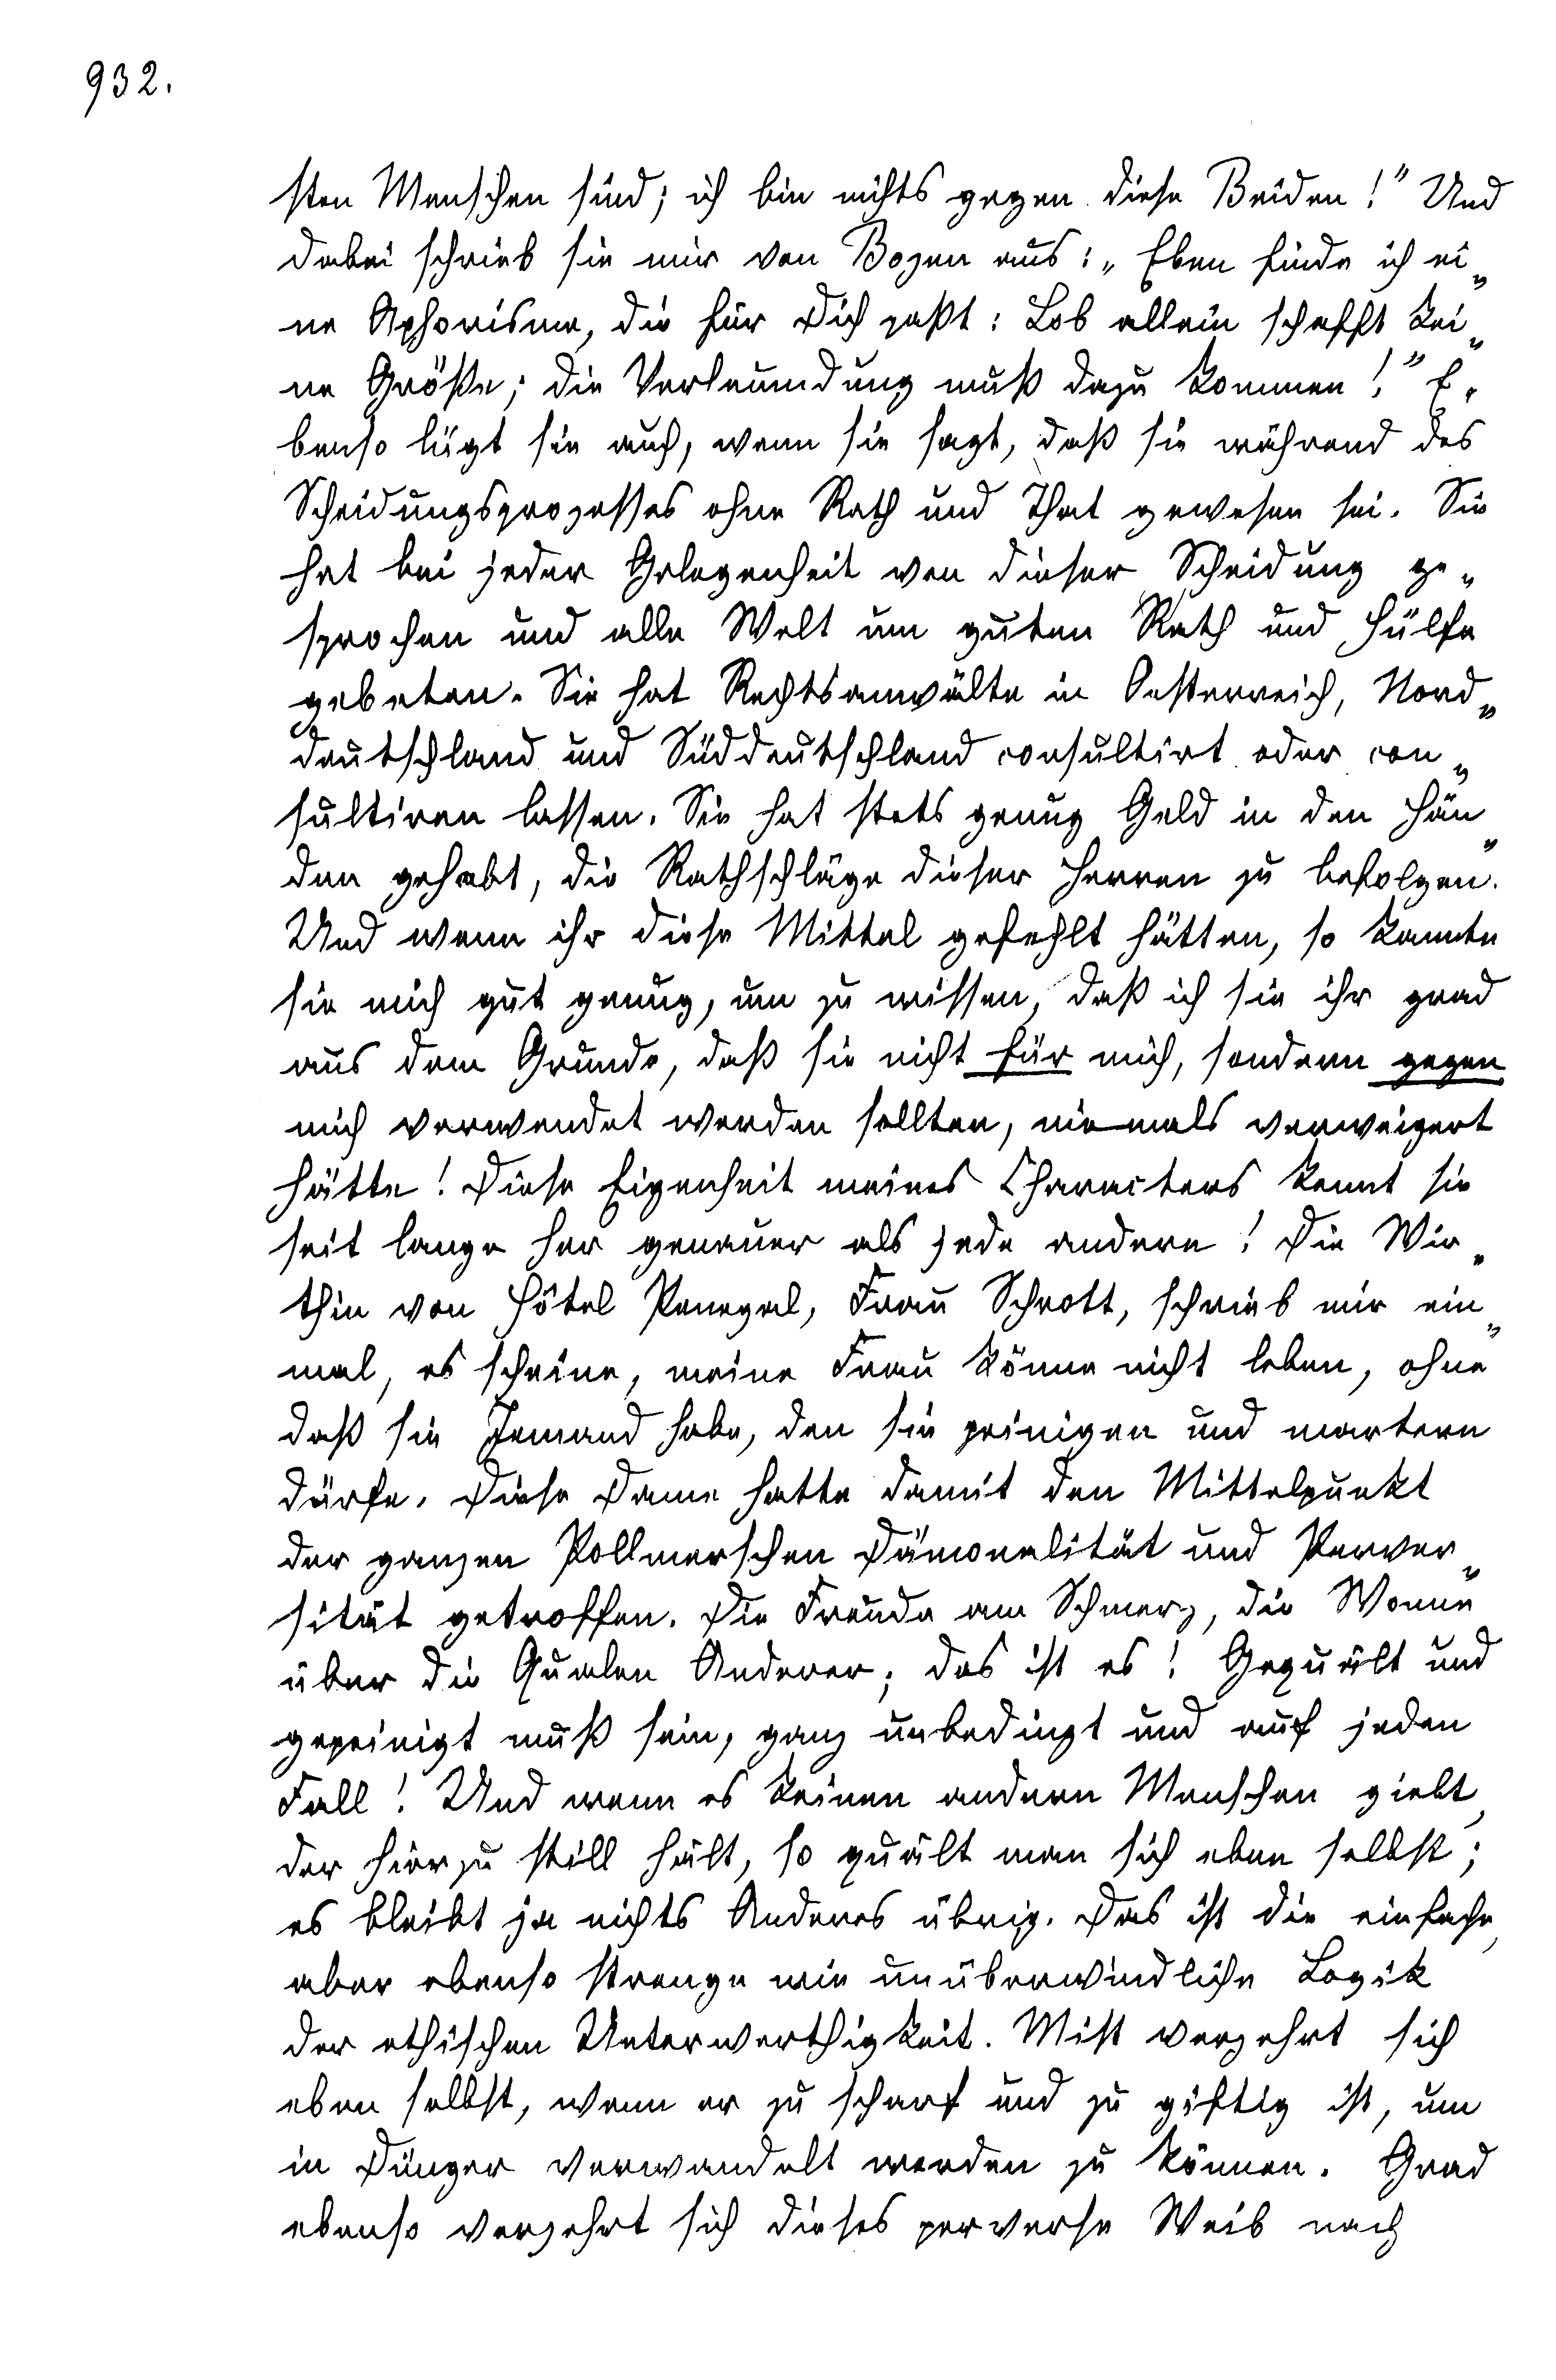 932.
sten Menschen sind; ich bin nichts gegen diese Beiden!" Und
dabei schrieb sie mir von Bozen aus: „Eben finde ich ei„
ne Aphorisme, die für Dich paßt: Lob allein schafft kei„
ne Größe; die Verleumdung muß dazu kommen!" E„
benso lügt sie auch, wenn sie sagt, daß sie während des
Scheidungsprozesses ohne Rath und That gewesen sei. Sie
hat bei jeder Gelegenheit von dieser Scheidung ge„
sprochen und alle Welt um guten Rath und Hülfe
gebeten. Sie hat Rechtsanwälte in Oesterreich, Nord„
deutschland und Süddeutschland consultirt oder con„
sultiren lassen. Sie hat stets genug Geld in den Hän„
den gehabt, die Rathschläge dieser Herren zu befolgen.
Und wenn ihr diese Mittel gefehlt hätten, so kannte
sie mich gut genug, um zu wissen, daß ich sie ihr grad
aus dem Grunde, daß sie nicht für mich, sondern gegen
mich verwendet werden sollten, niemals verweigert
hätte! Diese Eigenheit meines Characters kennt sie
seit lange her genauer als jede andere! Die Wir„
thin von Hôtel Penegal, Frau Schrott, schrieb mir ein„
mal, es scheine, meine Frau könne nicht leben, ohne
daß sie Jemand habe, den sie peinigen und martern
dürfe. Diese Dame hatte damit den Mittelpunkt
der ganzen Pollmerschen Dämonalität und Perver„
sität getroffen. Die Freude am Schmerz, die Wonne
über die Qualen Anderer; das ist es! Gequält und
gepeinigt muß sein, ganz unbedingt und auf jeden
Fall! Und wenn es keinen andern Menschen giebt,
der hierzu still hält, so quält man sich eben selbst;
es bleibt ja nichts Anderes übrig. Das ist die einfache,
aber ebenso strenge wie unüberwindliche Logik
der ethischen Unterwerthigkeit. Mist verzehrt sich
eben selbst, wenn er zu scharf und zu giftig ist, um
in Dünger verwandelt werden zu können. Grad
ebenso verzehrt sich dieses perverse Weib nach